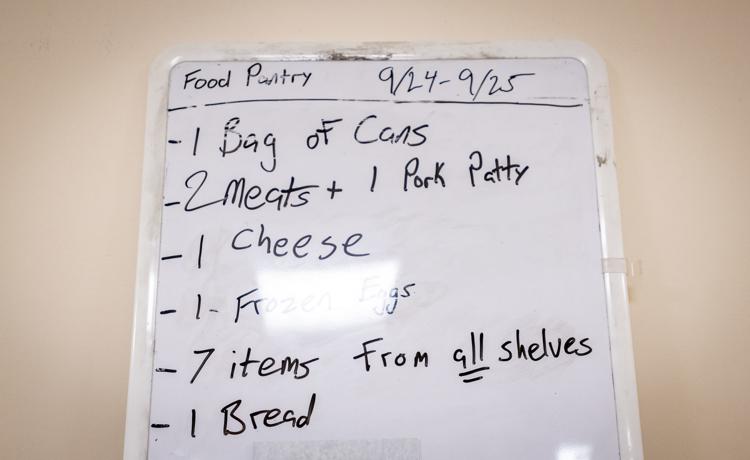 Food Pantry 9/24-9/25
- 1 Bag of Cans
- 2 Meats + 1 Pork Patty
- 1 Cheese
- 1- Frozen Eggs
- 7 items from all shelves
- 1 Bread